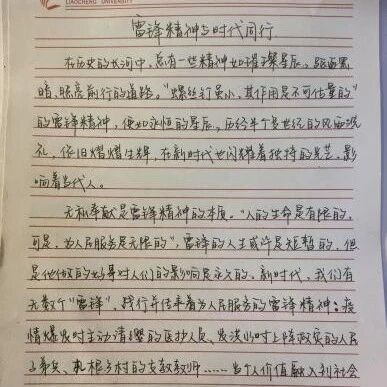 LIAOCHENG UNIVERSITY
雷锋精神与时代同行
在历史的长河中，总有一些精神如璀璨星辰，驱逐黑
暗，照亮前行的道路。"螺丝钉虽小，其作用是不可估量的"
的雷锋精神，便如永恒的星辰，历经半个多世纪的风雨洗
礼，依旧熠熠生辉，在新时代也闪耀着独特的光芒，影
响着当代人。
无私奉献是雷锋精神的本质。"人的生命是有限的，
可是，为人民服务是无限的"，雷锋的人生或许是短暂的，但
是他做的好事对人们的影响是永久的。新时代，我们有
无数个"雷锋"，践行并传承着为人民服务的雷锋精神：疫
情爆发时主动请缨的医护人员、发洪水时上阵救灾的人民
子弟兵、扎根乡村的支教教师……当个人价值融入到社会